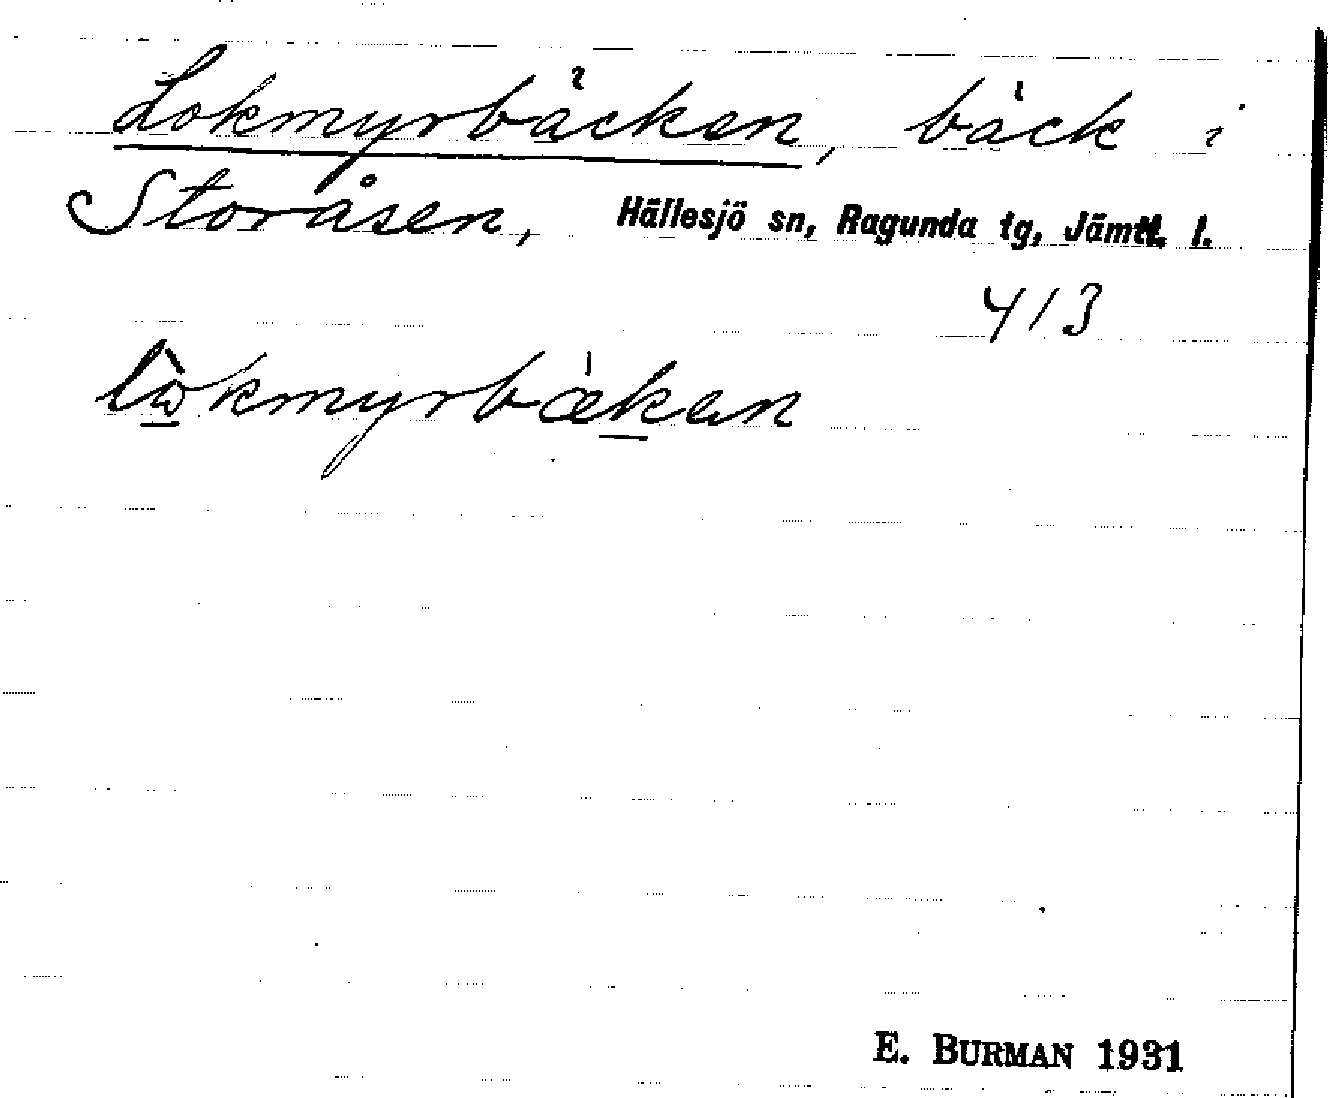 Lokmyrbäcken, bäck i
Storåsen, Hällesjö sn, Ragunda tg, Jämtl. l.
413
E. BURMAN 1931